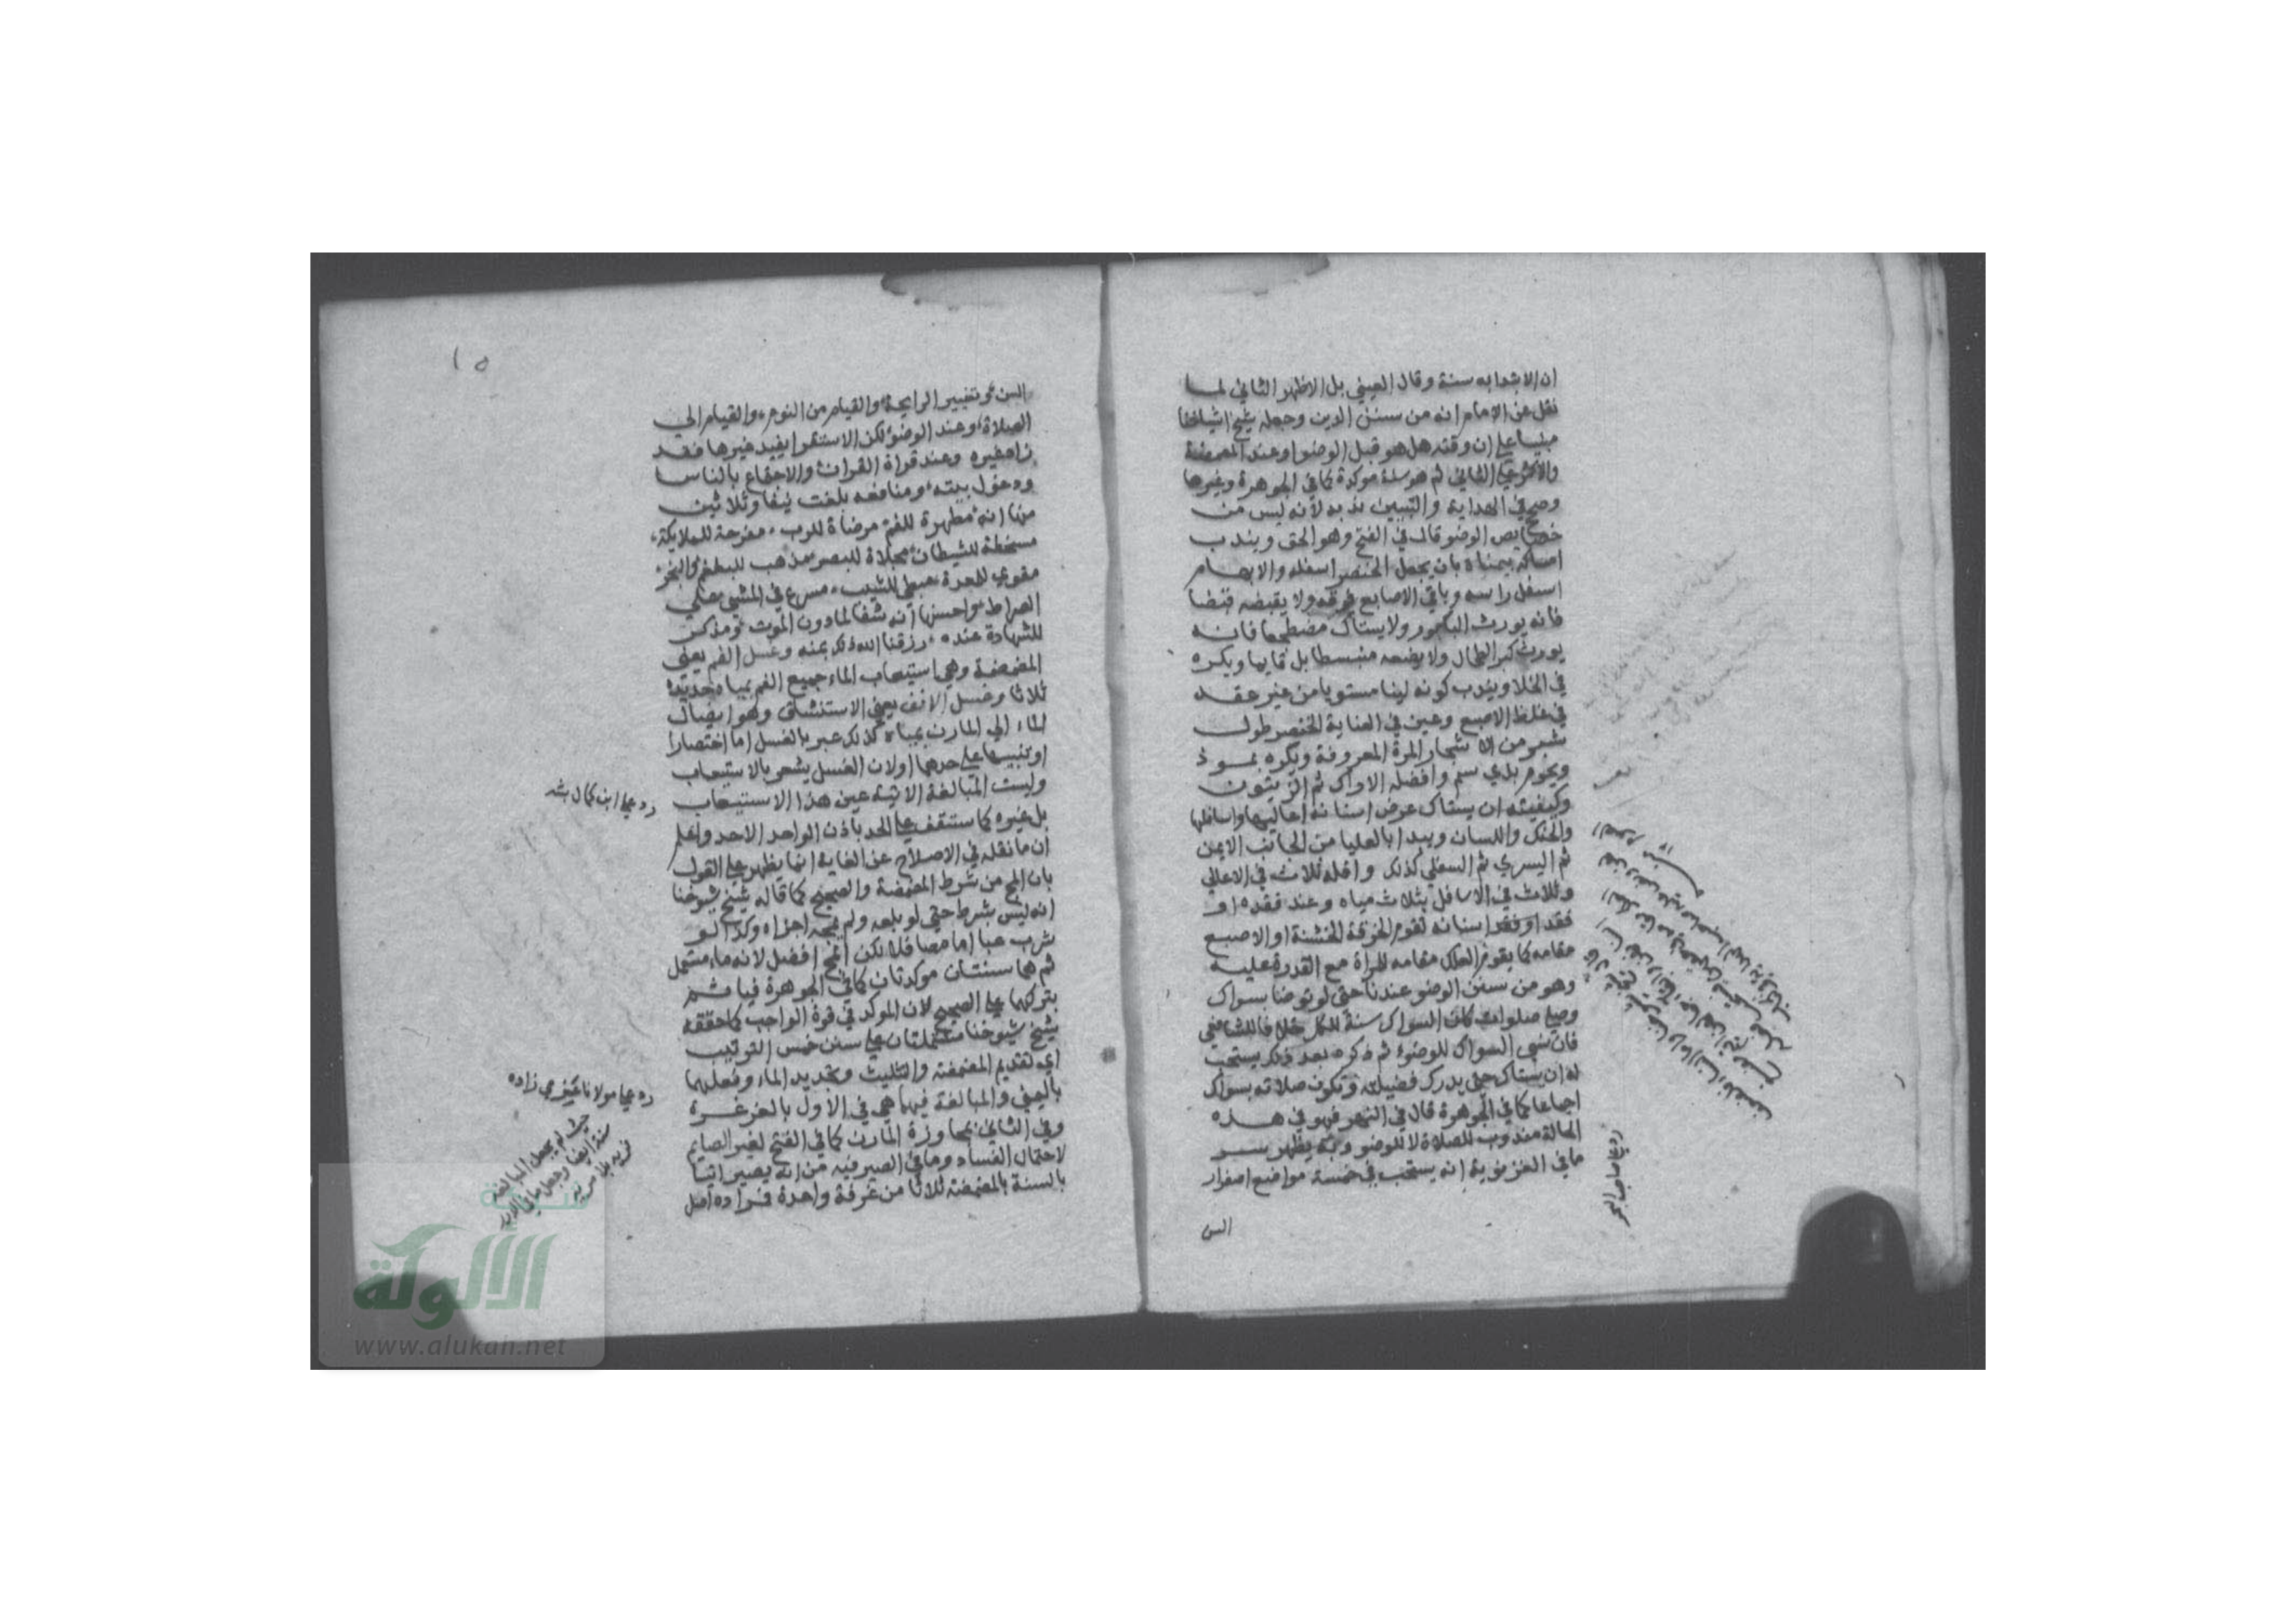 ان الابتدا به سنة وقال العيني بل الاظهر الثاني لما
نقل عن الامام انه من سنن الدين وجعله شيخ اشياخنا
مبنيا على ان وقته هل هو قبل الوضوا وعند المضمضة
والاكثر على الثاني ثم هو سنة موكدة كما في الجوهرة وغيرها
وصحح في الهداية والتبيين ندبه لانه ليس من
خصايص الوضو قال في الفتح وهو الحق ويندب
امساكه بيمناه بان يجعل الخنصر اسفله والابهام
اسفل راسه وباقي الاصابع فوقه ولا يقبضه قبضا
فانه يورث الباسور ولا يستاك مضطجعا فانه
يورث كبر الطحال ولا يضعه منبسطا بل قايما ويكره
في الخلا ويندب كونه لينا مستويا من غير عقد
في غلظ الاصبع وعين في العناية الخنصر طول
شبر من الاشجار المرة المعروفة ويكره بموذ
ويحرم بذي سم وافضله الاراك ثم الزيتون
وكيفيته ان يستاك عرض اسنانه اعاليها واسافلها
والحنك واللسان ويبدا بالعليا من الجانب الايمن
ثم اليسري ثم السفلى كذلك واقله ثلاث في الاعالي
وثلاث في الاسافل بثلاث مياه وعند فقده او
فقد اسنانه تقوم الخرقة الخشنة او الاصبع
مقامه كما يقوم العلك مقامه للمراة مع القدرة عليه
وهو من سنن الوضو عندنا حتى لو توضا بسواك
وصلى صلوات كان السواك سنة للكل خلافا للشافعي
فان نسي السواك للوضوء ثم ذكره بعد ذلك يستحب
له ان يستاك حتى يدرك فضيلته وتكون صلاته بسواك
اجماعا كما في الجوهرة قال في النهر فهو في هذه
الحالة مندوب للصلاة لا للوضو وبه يظهر سر
ما في الغزنوية انه يستحب في خمسة مواضع اصفرار
السن
رد على صاحب البحر
١٥
السن وتغيير الرايحة والقيام من النوم والقيام الى
الصلاة وعند الوضوء لكن الاستقرا يفيد غيرها فقد
زاد غيره وعند قراة القران والاجتماع بالناس
ودخول بيته ومنافعه بلغت نيفا وثلاثين
منها انه مطهرة للفم مرضاة للرب مفرحة للملايكة
مسخطة للشيطان مجلاة للبصر مذهب للبلغم والبخر
مقوي للمعدة مبطي للشيب مسرع في المشي على
الصراط واحسنها انه شفا لما دون الموت ومذكر
للشهادة عنده رزقنا الله ذلك بمنه وغسل الفم يعني
المضمضة وهي استيعاب الماء جميع الفم بمياه جديدة
ثلاثا وغسل الانف يعني الاستنشاق وهو ايصال
الماء الى المارن بمياه كذلك عبر بالغسل اما اختصارا
او تنبيها على حدهما او لان الغسل يشعر بالاستيعاب
وليست المبالغة الاتية عين هذا الاستيعاب
بل غيره كما ستقف على الحد باذن الواحد الاحد واعلم
ان ما نقله في الاصلاح عن الغاية انما يظهر على القول
بان المج من شرط المضمضة والصحيح كما قاله شيخ شيوخنا
انه ليس بشرط حتى لو بلعه ولم يمجه اجزاه وكذا لو
شرب عبا اما مصا فلا لكن المج افضل لانه ماء مستعمل
ثم هما سنتان موكدتان كما في الجوهرة فياثم
بتركهما على الصحيح لان الموكد في قوة الواجب كما حققه
شيخ شيوخنا مشتملتان على سنن خمس الترتيب
اي تقديم المضمضة والتثليث وتجديد الماء وفعلهما
باليمنى والمبالغة فيهما هي في الاول بالغرغرة
وفي الثاني بمجاوزة المارن كما في الفتح لغير الصايم
لاحتمال الفساد وما في الصيرفيه من انه يصير اتيا
بالسنة بالمضمضة ثلاثا من غرفة واحدة فمراده اصل
رد على ابن كمال باشه
حيث لم يجعل المبالغة
الألوكة
www.alukah.net